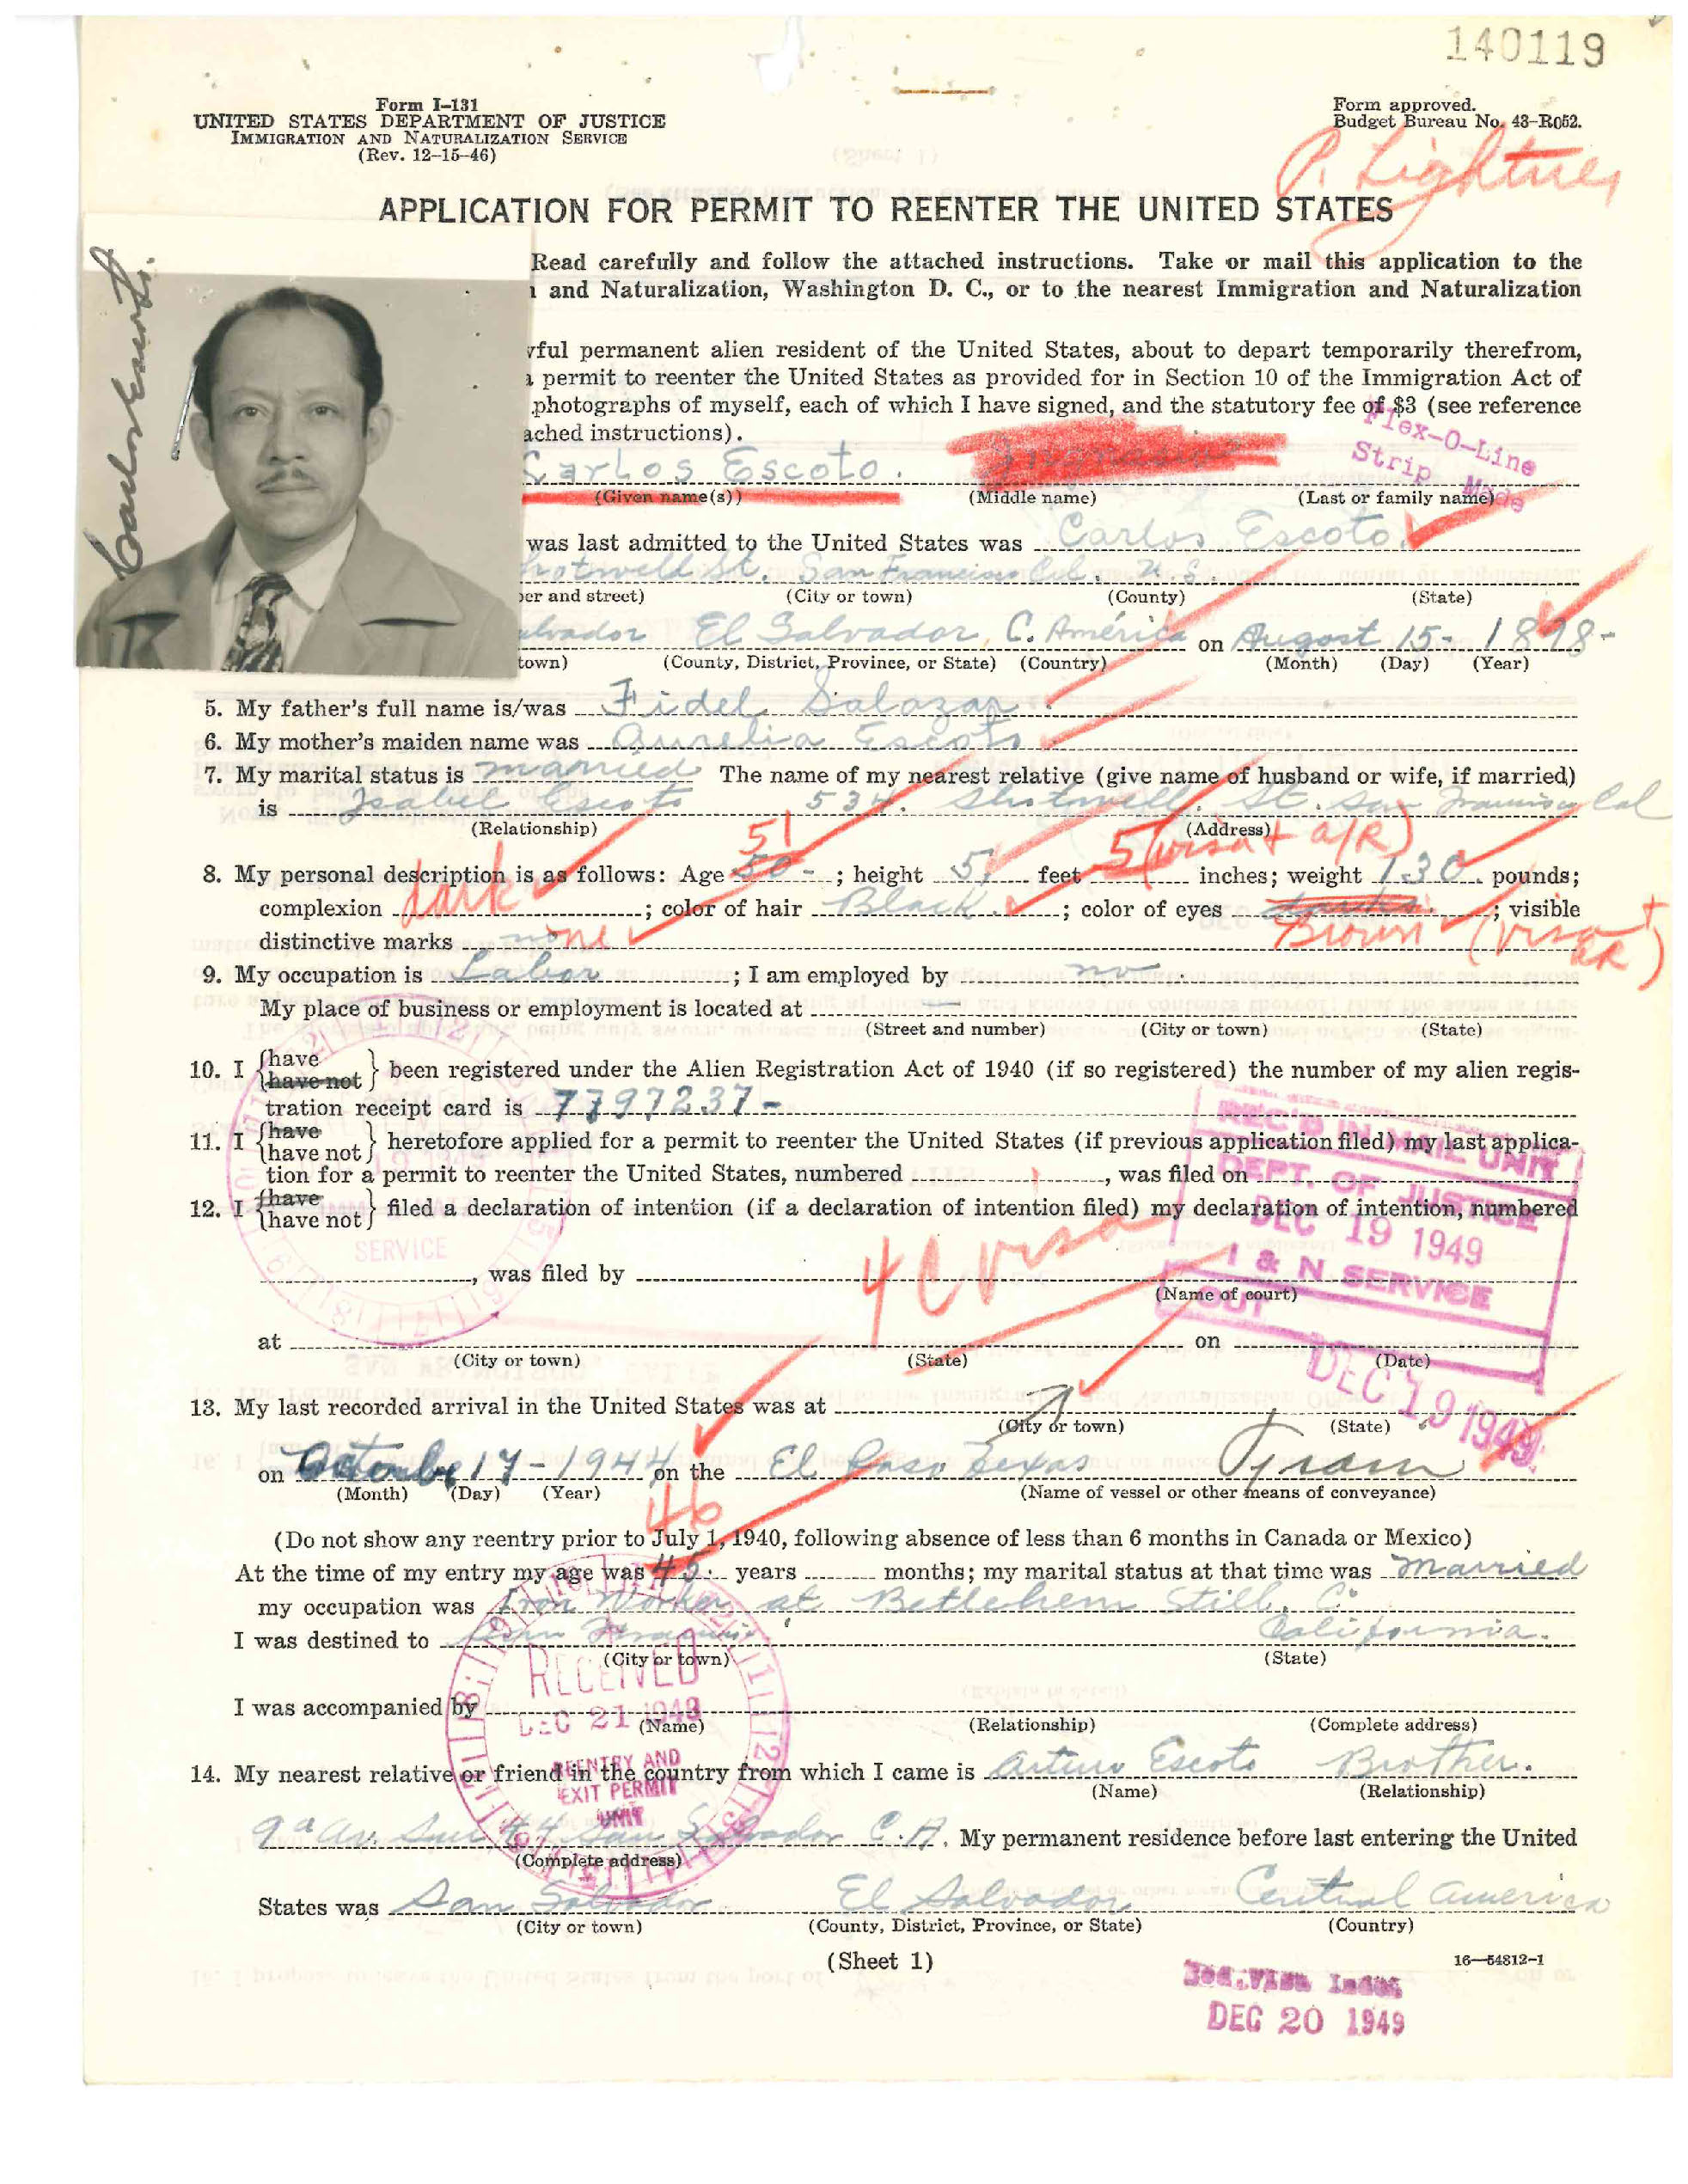 140119
Form I-131
UNITED STATES DEPARTMENT OF JUSTICE
IMMIGRATION AND NATURALIZATION SERVICE
(Rev. 12-15-46)
Form approved.
Budget Bureau No. 43-R052.
P. Lightner
APPLICATION FOR PERMIT TO REENTER THE UNITED STATES
Carlos Escoto.
Read carefully and follow the attached instructions. Take or mail this application to the
and Naturalization, Washington D. C., or to the nearest Immigration and Naturalization
ful permanent alien resident of the United States, about to depart temporarily therefrom,
permit to reenter the United States as provided for in Section 10 of the Immigration Act of
photographs of myself, each of which I have signed, and the statutory fee of $3 (see reference
ached instructions).
Flex-O-Line
Strip Made
Carlos Escoto.
(Given name(s)) (Middle name) (Last or family name)
was last admitted to the United States was Carlos Escoto.
hotwell St. San Francisco Cal. U.S.
er and street) (City or town) (County) (State)
alvador El Salvador, C. América on Augost 15- 1898-
town) (County, District, Province, or State) (Country) (Month) (Day) (Year)
5. My father's full name is/was Fidel Salazar
6. My mother's maiden name was Aurelia Escoto
7. My marital status is married The name of my nearest relative (give name of husband or wife, if married)
is Isabel Escoto 534. Shotwell. St. San Francisco Cal
(Relationship) (Address)
51 5 (visa + a/R)
8. My personal description is as follows: Age 50- ; height 5, feet inches; weight 130 pounds;
complexion dark ; color of hair Black. ; color of eyes ; visible
Brown (visa + AR)
distinctive marks none
9. My occupation is Labor ; I am employed by no
My place of business or employment is located at
(Street and number) (City or town) (State)
10. I {have have not} been registered under the Alien Registration Act of 1940 (if so registered) the number of my alien regis-
tration receipt card is 7797237-
11. I {have have not} heretofore applied for a permit to reenter the United States (if previous application filed) my last applica-
tion for a permit to reenter the United States, numbered , was filed on
12. I {have have not} filed a declaration of intention (if a declaration of intention filed) my declaration of intention, numbered
REC'D IN MAIL UNIT
DEPT. OF JUSTICE
DEC 19 1949
I & N SERVICE
OUT
SERVICE
4C visa
, was filed by
(Name of court)
at on
(City or town) (State) (Date)
DEC 19 1949
13. My last recorded arrival in the United States was at
(City or town) (State)
on October 17-1944 on the El Paso Texas
(Month) (Day) (Year) (Name of vessel or other means of conveyance)
46
(Do not show any reentry prior to July 1, 1940, following absence of less than 6 months in Canada or Mexico)
At the time of my entry my age was 45 years months; my marital status at that time was married
my occupation was Iron Worker at Betlehem Still. C.
I was destined to San Francisco California.
(City or town) (State)
RECEIVED
DEC 21 1949
REENTRY AND
EXIT PERMIT
UNIT
I was accompanied by
(Name) (Relationship) (Complete address)
14. My nearest relative or friend in the country from which I came is Arturo Escoto Brother.
(Name) (Relationship)
9a Av. Sur 44 San Salvador C.A. My permanent residence before last entering the United
(Complete address)
States was San Salvador El Salvador Central America
(City or town) (County, District, Province, or State) (Country)
(Sheet 1)
16—54812-1
DEC 20 1949